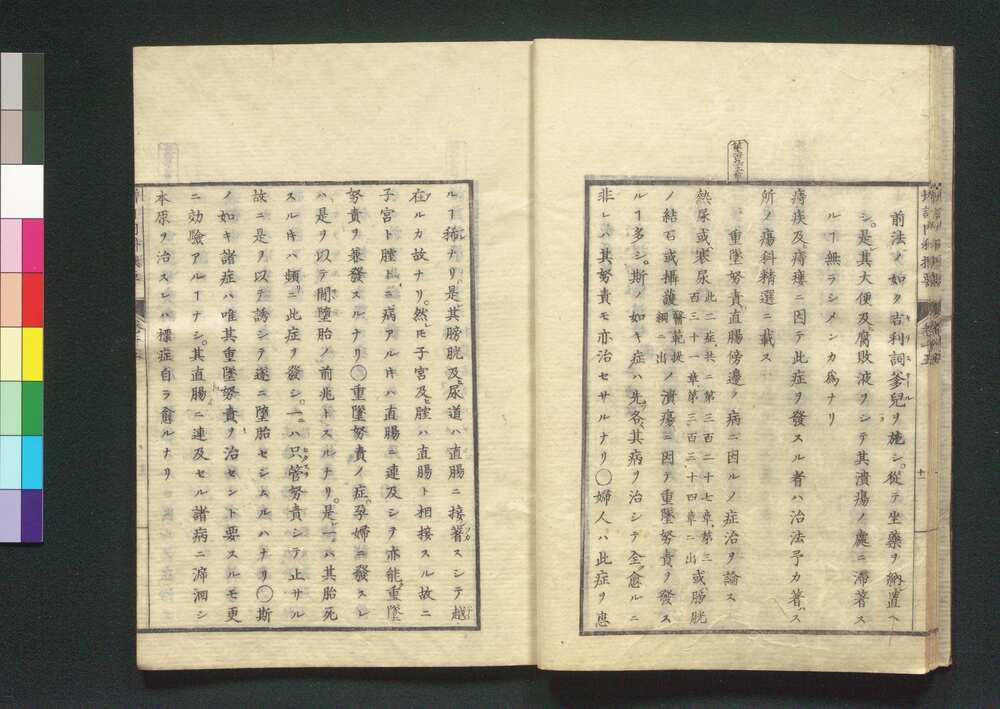 前法ノ如ク吉利詞爹兒ヲ施シ。從テ坐藥ヲ納置ヘ
シ。是レ其大便及ヒ腐敗液ヲシテ其潰瘍ノ處ニ滯著ス
ルヿ無ラシメンカ爲ナリ
痔疾及ヒ痔瘻ニ因テ此症ヲ發スル者ハ治法予カ著ス
所ノ瘍科精選ニ載ス
重墜努責直腸傍邊ノ病ニ因ルノ症治ヲ論ス
熱尿或ハ寒尿 此二症、共ニ第三百二十七章、第三百三十一章、第三百三十四章ニ出 或ハ膀胱
ノ結石或ハ攝護 醫範提綱ニ出 ノ潰瘍ニ因テ重墜努責ヲ發ス
ルヿ多シ。斯ノ如キ症ハ先ツ各其病ヲ治シテ全ク愈ルニ
非レハ其努責モ亦治セサルナリ○婦人ハ此症ヲ患
ルヿ稀ナリ是レ其膀胱及ヒ尿道ハ直腸ニ接著スシテ越
在ルカ故ナリ。然ㇾ𪜈子宮及ヒ腟ハ直腸ト相接スル故ニ
子宮ト腟トニ病アルトキハ直腸ニ連及シテ亦能ク重墜
努責ヲ兼發スルナリ○重墜努責ノ症。孕婦ニ發スレ
ハ是ヲ以テ間墮胎ノ前兆トスルナリ。是レ一ハ其胎死
スルトキハ頻ニ此症ヲ發シ。一ハ只管努責シテ止サル
故ニ是ノ以テ誘シテ遂ニ墮胎セシムルハナリ○斯
ノ如キ諸症ハ唯其重墜努責ヲ治セント要スルモ更
ニ効驗アルヿナシ。其直腸ニ連及セル諸病ニ溯洄シ
本原ヲ治スレハ標症自ラ愈ルナリ